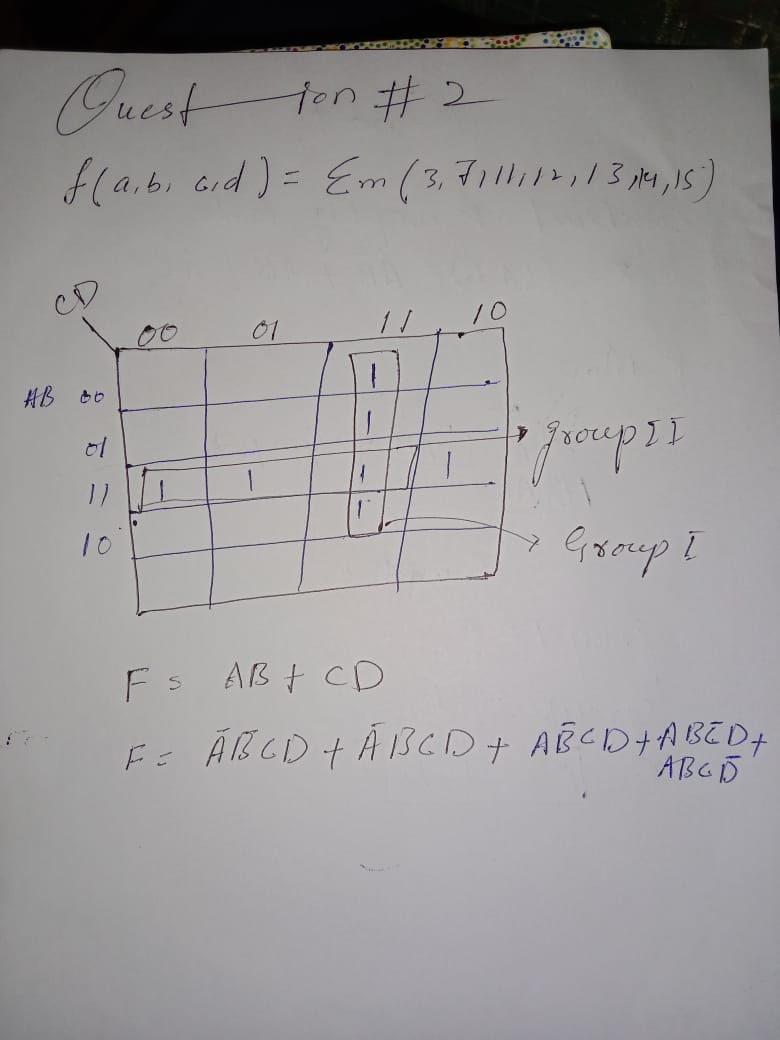 Question # 2
f(a,b, c,d) = Σm (3,7,11,12,13,14,15)
CD
00 01 11 10
AB 00 1
01 1
11 1 1 1 1
10 1
group II
Group I
F = AB + CD
F = ĀB̄CD + ĀBCD + AB̄CD + ABC̄D +
ABCD̄